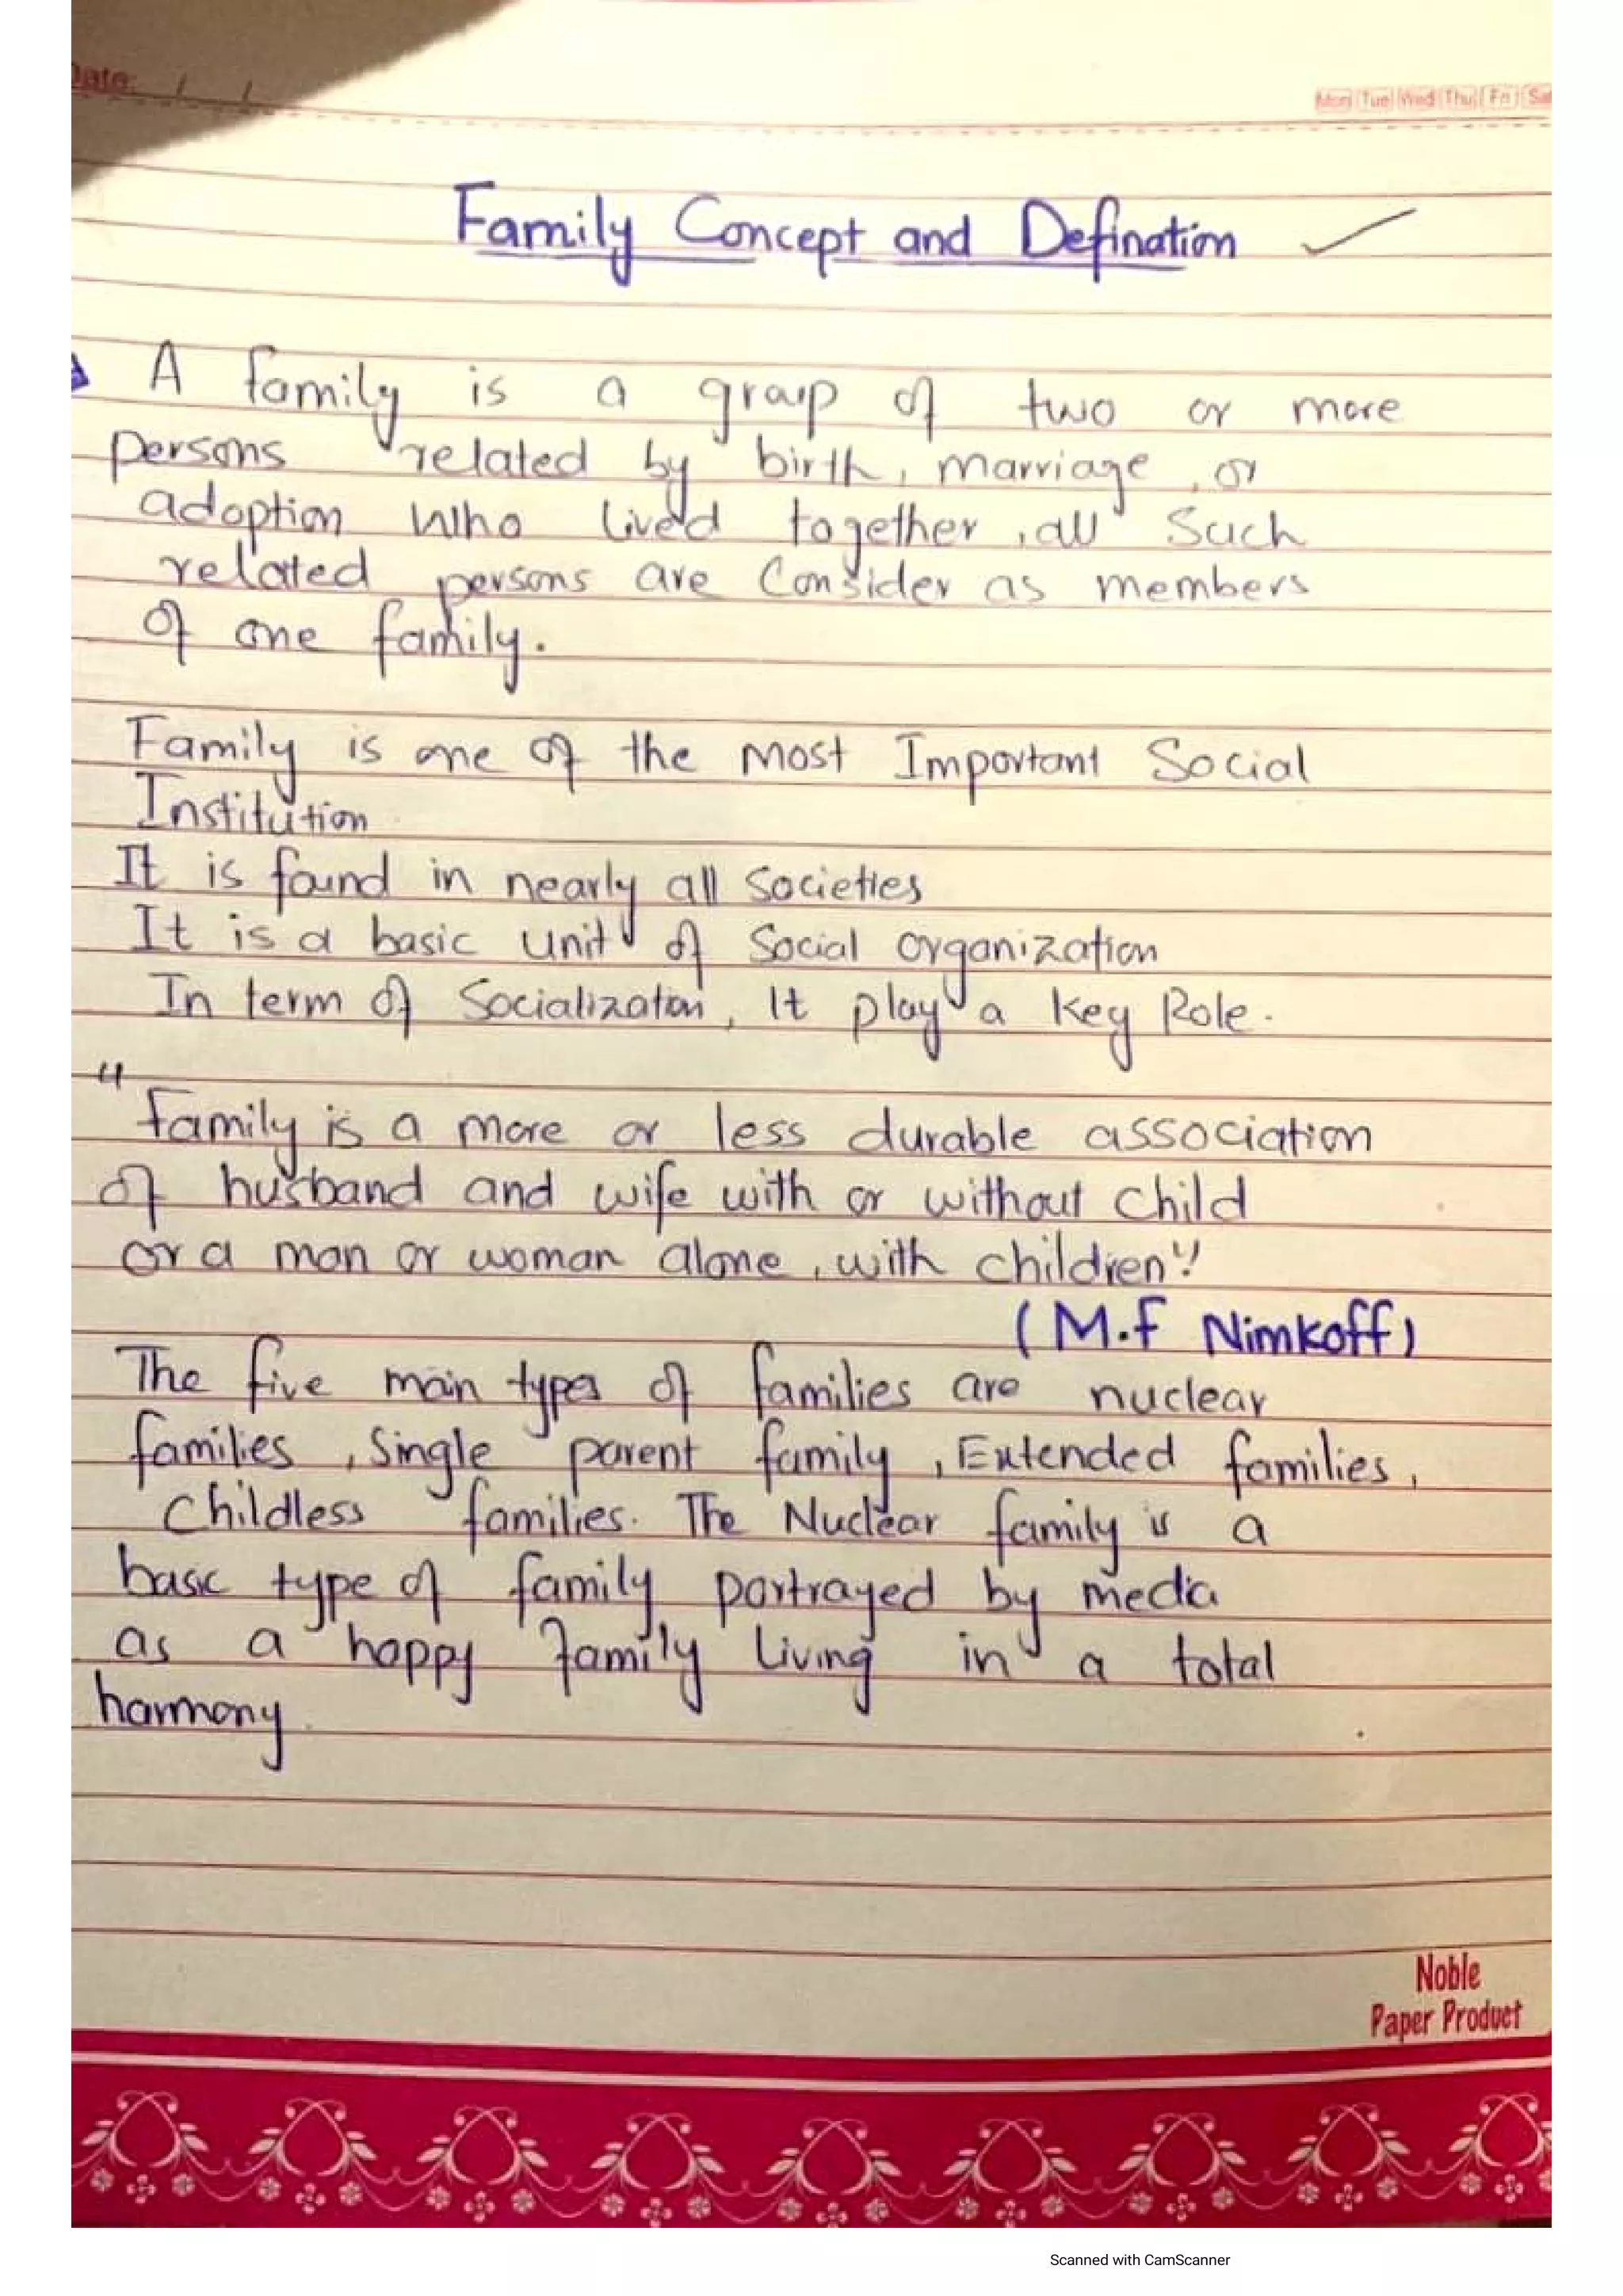 Date: / /
Mon Tue Wed Thu Fri Sat
Family Concept and Defination
A family is a group of two or more
persons related by birth, marriage, or
adoption who lived together, all such
related persons are Consider as members
of one family.
Family is one of the most Important Social
Institution
It is found in nearly all societies
It is a basic unit of social organization
In term of Socializaton, It play a key Role.
"family is a more or less durable association
of husband and wife with or without child
or a man or woman alone, with children"
(M.F Nimkoff)
The five main types of families are nuclear
families, Single parent family, Extended families,
Childless families. The Nuclear family is a
basic type of family portrayed by media
as a happy family living in a total
harmony.
Noble
Paper Product
Scanned with CamScanner